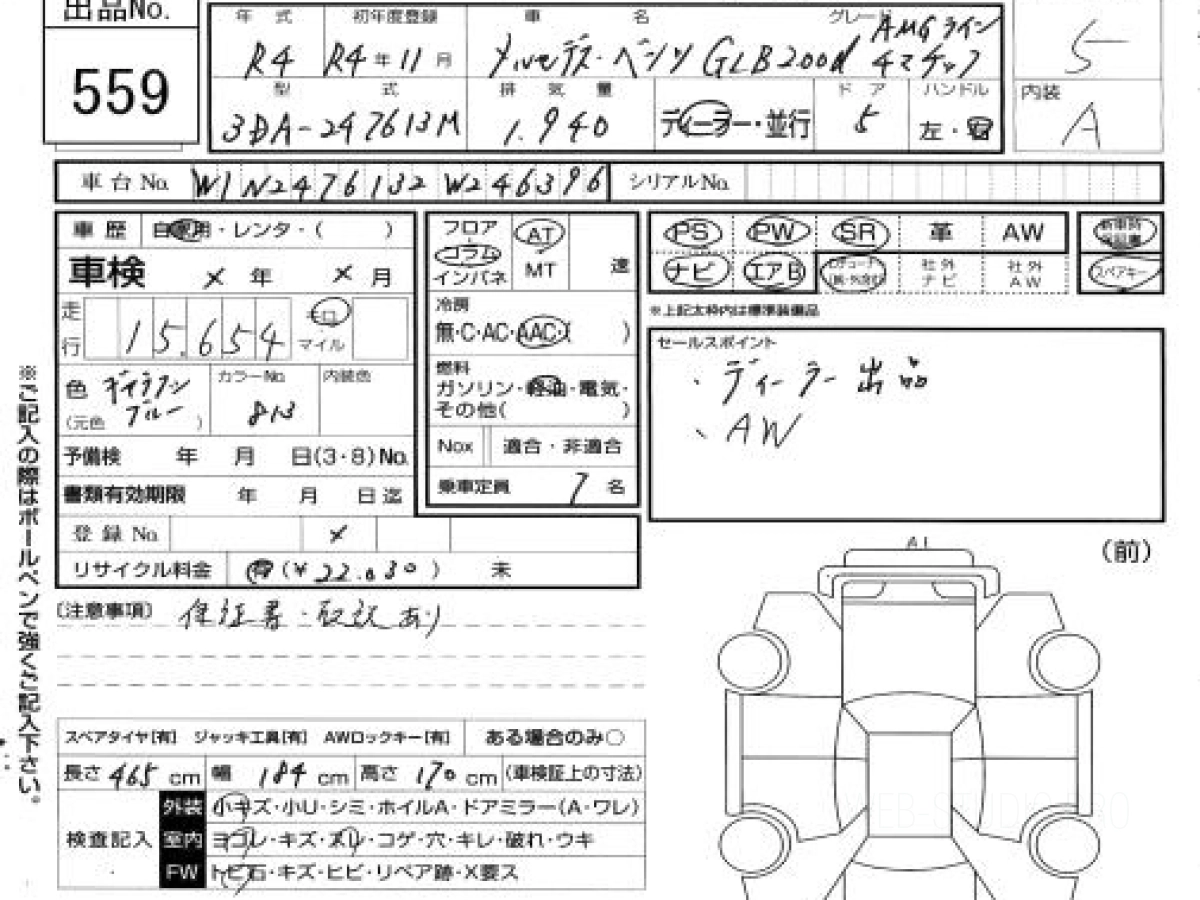 出品No.
559
年式 初年度登録 車名 グレード
R4 R4年11月 メルセデス・ベンツ GLB200d AMGライン 4マチック
S
型式 排気量 ドア ハンドル 内装
3DA-247613M 1.940 ディーラー・並行 5 左・右 A
車台No. W1N2476132W246396 シリアルNo.
車歴 自家用・レンタ・( )
車検 × 年 × 月
走行 15.654 キロ マイル
色 (元色 ) ブルー カラーNo 内装色
予備検 年 月 日(3・8)No.
書類有効期限 年 月 日迄
登録No. ×
リサイクル料金 有(¥22.030) 未
フロア コラム インパネ AT MT 速
冷房
無・C・AC・AAC・( )
燃料
ガソリン・軽油・電気・
その他( )
Nox 適合・非適合
乗車定員 7名
PS PW SR 革 AW 新車時保証書
ナビ エアB 社外ナビ 社外AW スペアキー
※上記太枠内は標準装備品
セールスポイント
・ディーラー出品
、AW
(注意事項) 保証書・取説あり
A1
(前)
スペアタイヤ[有] ジャッキ工具[有] AWロックキー[有] ある場合のみ○
長さ 465 cm 幅 184 cm 高さ 170 cm (車検証上の寸法)
検査記入
外装 小キズ・小U・シミ・ホイルA・ドアミラー(A・ワレ)
室内 ヨゴレ・キズ・スレ・コゲ・穴・キレ・破れ・ウキ
FW トビ石・キズ・ヒビ・リペア跡・X要ス
※ご記入の際はボールペンで強くご記入下さい。